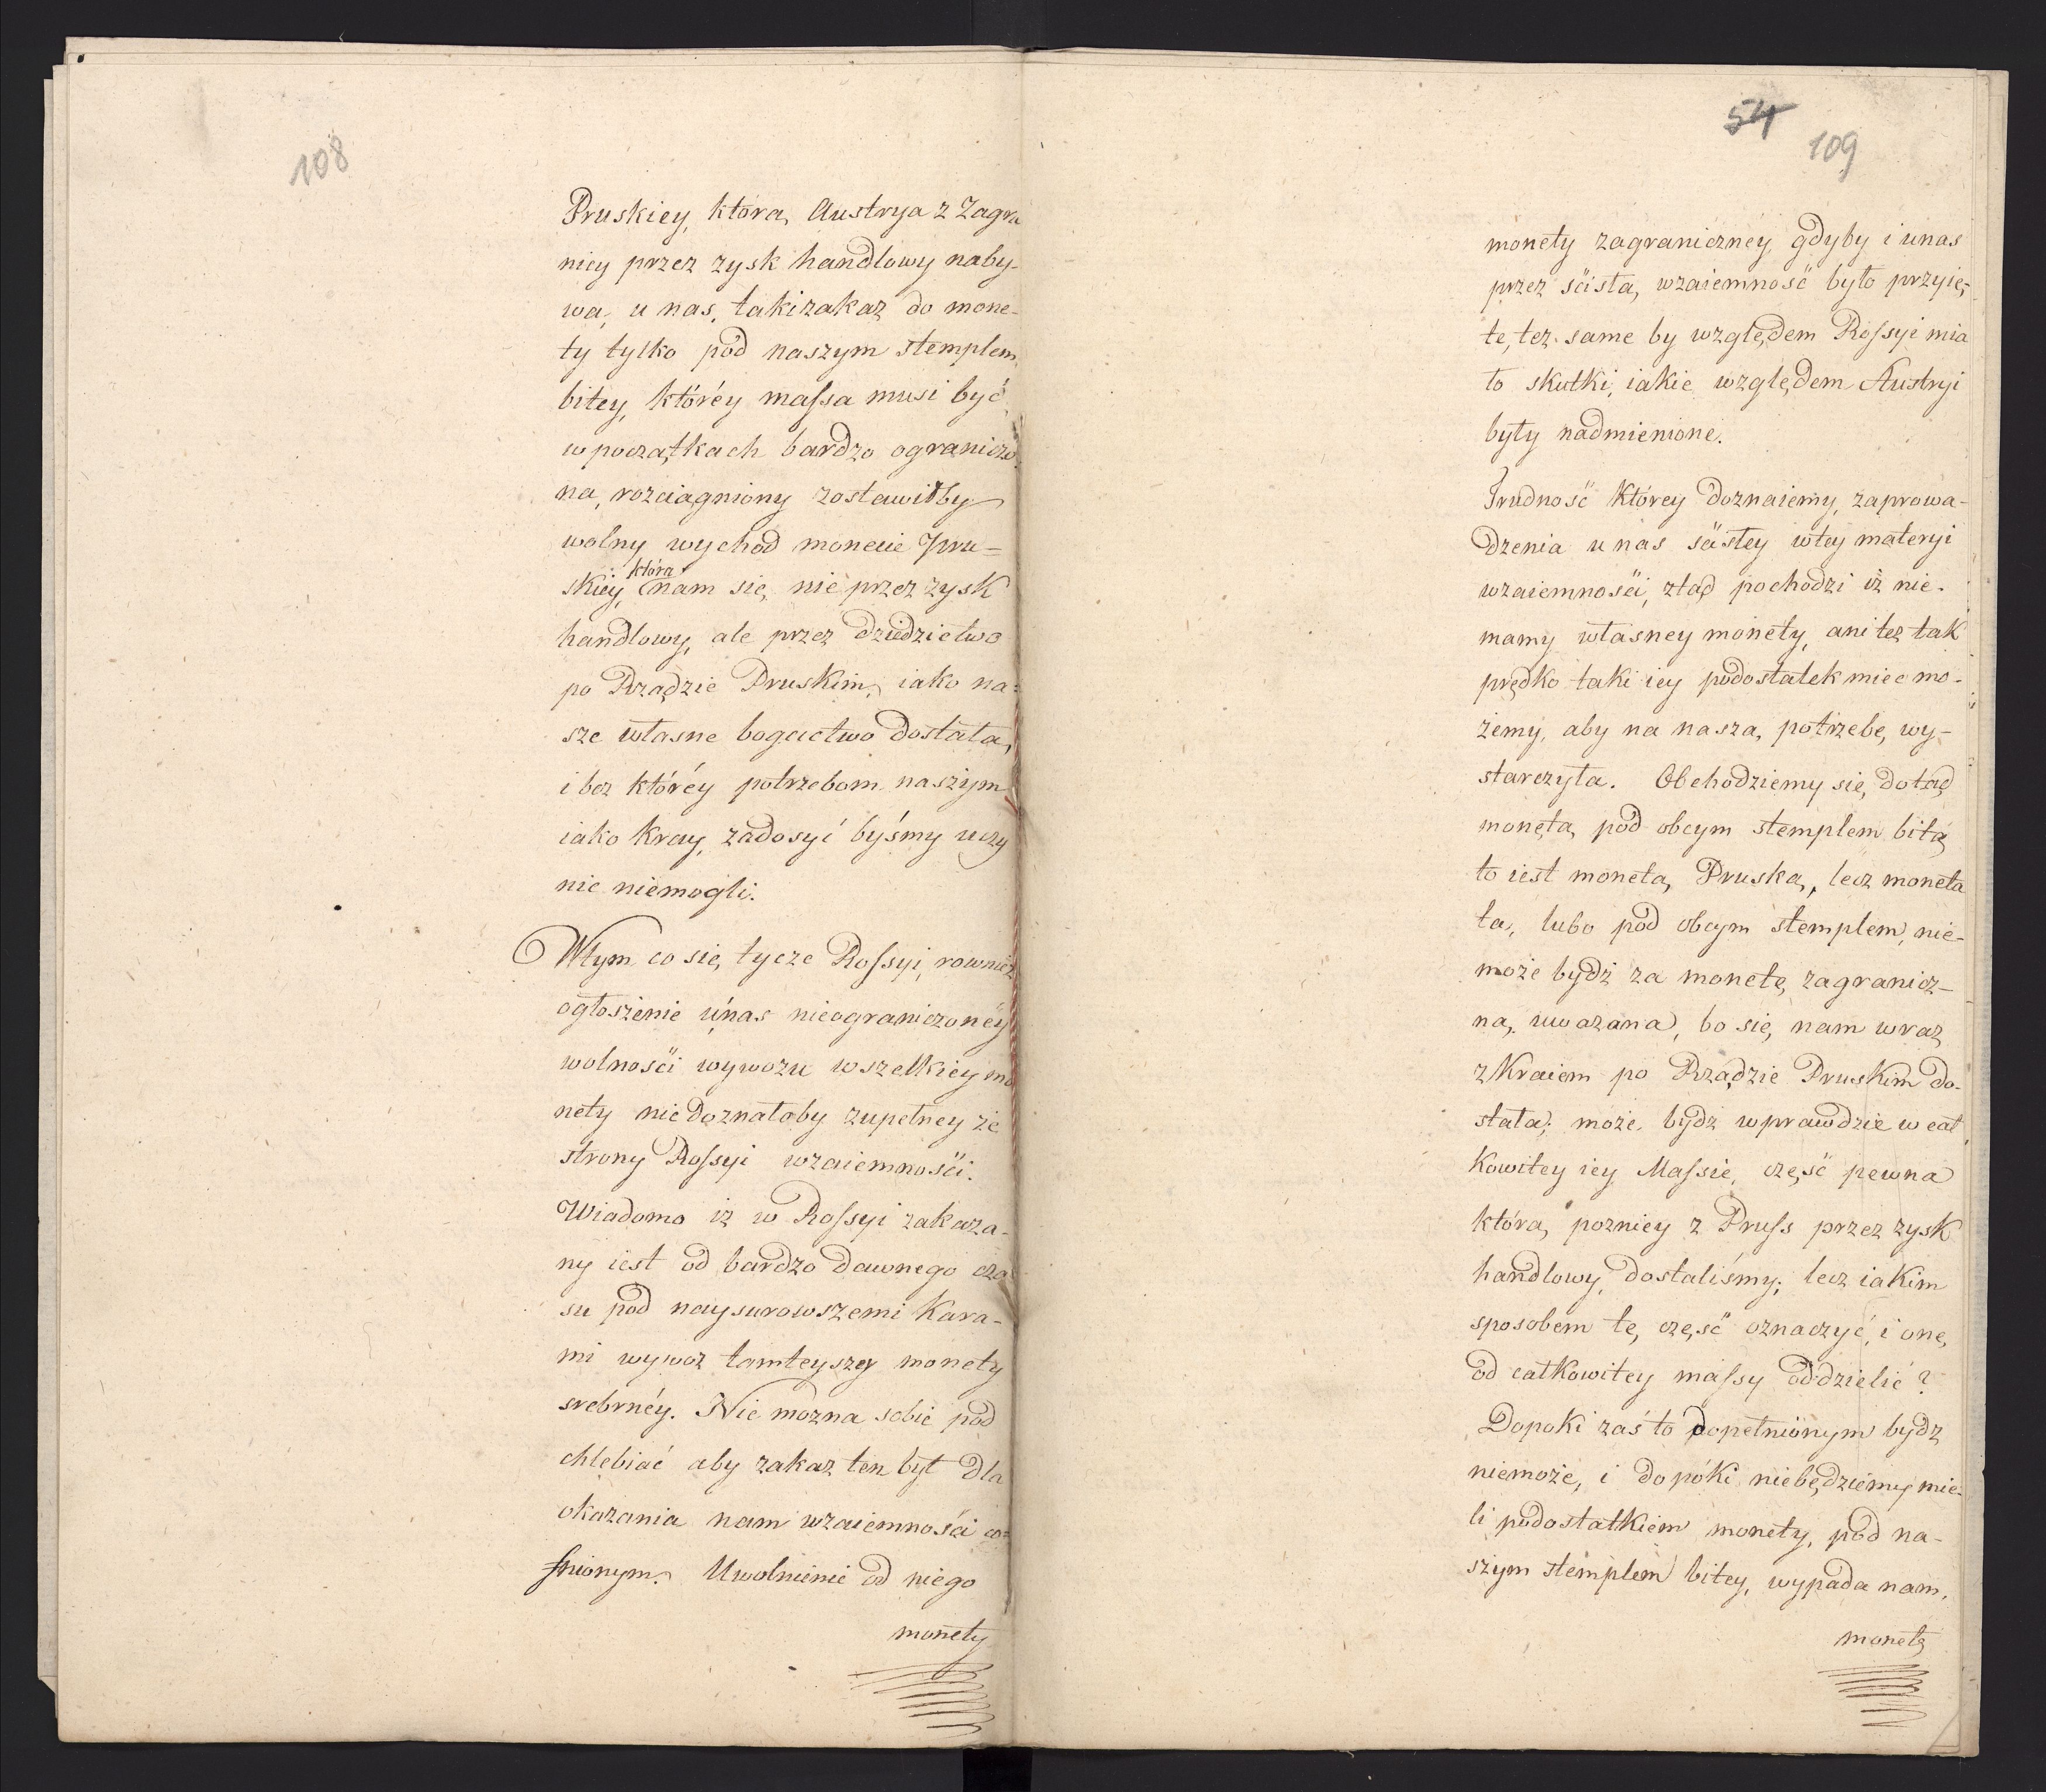 108
Pruskiey, którą Austrya z Zagra
nicy przez zysk handlowy naby-
wa, u nas, taki zakaz do mone-
ty tylko pod naszym stemplem
bitey, któréy massa musi być
w początkach bardzo ograniczo
na, rozciągniony zostawiłby
wolny wychod monecie Pru=
skiey, która nam się, nie przez zysk
handlowy, ale przez dziedzictwo
po Rządzie Pruskim, iako na=
sze własne bogactwo dostała,
i bez któréy potrzebom naszym
iako Kray, zadosyć byśmy uczy
nic niemogli.
Wtym co się tycze Rossyi, rownież
ogłoszenie unas nieograniczonéy
wolności wywozu wszelkiey mo
nety niedoznałoby zupełney ze
strony Rossyi wzaiemności.
Wiadomo iż w Rossyi zakaza-
ny iest od bardzo dawnego cza
su pod naysurowszemi Kara-
mi wywoz tamteyszey monety
srebrnéy. Nie można sobie pod
chlebiać aby zakaz ten był dla
okazania nam wzaiemności co=
fnionym. Uwolnienie od niego
monety
54
109
monety zagranicznéy gdyby i unas
przez ścisłą wzaiemność było przyię-
te, też same by względem Rossyi mia
ło skutki, iakie względem Austryi
były nadmienione.
Trudność którey doznaiemy, zaprowa-
dzenia u nas ścisłey wtey materyi
wzaiemności, ztąd pochodzi iż nie-
mamy własney monety, ani też tak
prędko taki iey podostatek miec mo-
żemy, aby na naszą potrzebę wy-
starczyła. Obchodziemy się dotąd
monetą pod obcym stemplem bitą
to iest monetą Pruską, lecz moneta
ta, lubo pod obcym stemplem, nie-
może bydź za monetę zagranicz-
ną uważana, bo się nam wraz
z Kraiem po Rządzie Pruskim do-
stała; może bydź wprawdzie w cał
kowitey iey Massie, część pewna
którą pozniey z Pruss przez zysk
handlowy, dostaliśmy; lecz iakim
sposobem tę część oznaczyć, i onę
od całkowitey massy oddzielić?
Dopoki zaś to dopełnionym bydź
niemoże, i dopóki niebędziemy mie-
li podostatkiem monety, pod na-
szym stemplem bitey, wypada nam,
monetę